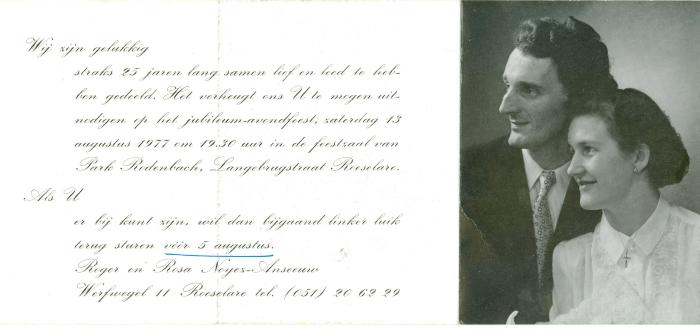 Wij zijn gelukkig
straks 25 jaren lang samen lief en leed te heb-
ben gedeeld. Het verheugt ons U te mogen uit-
nodigen op het jubileum-avondfeest; zaterdag 13
augustus 1977 om 19.30 uur in de feestzaal van
Park Rodenbach, Langebrugstraat Roeselare.
Als U
er bij kunt zijn, wil dan bijgaand linker luik
terug sturen vóór 5 augustus.
Roger en Rosa Noyez-Anseeuw
Werfwegel 11 Roeselare tel. (051) 20 62 29